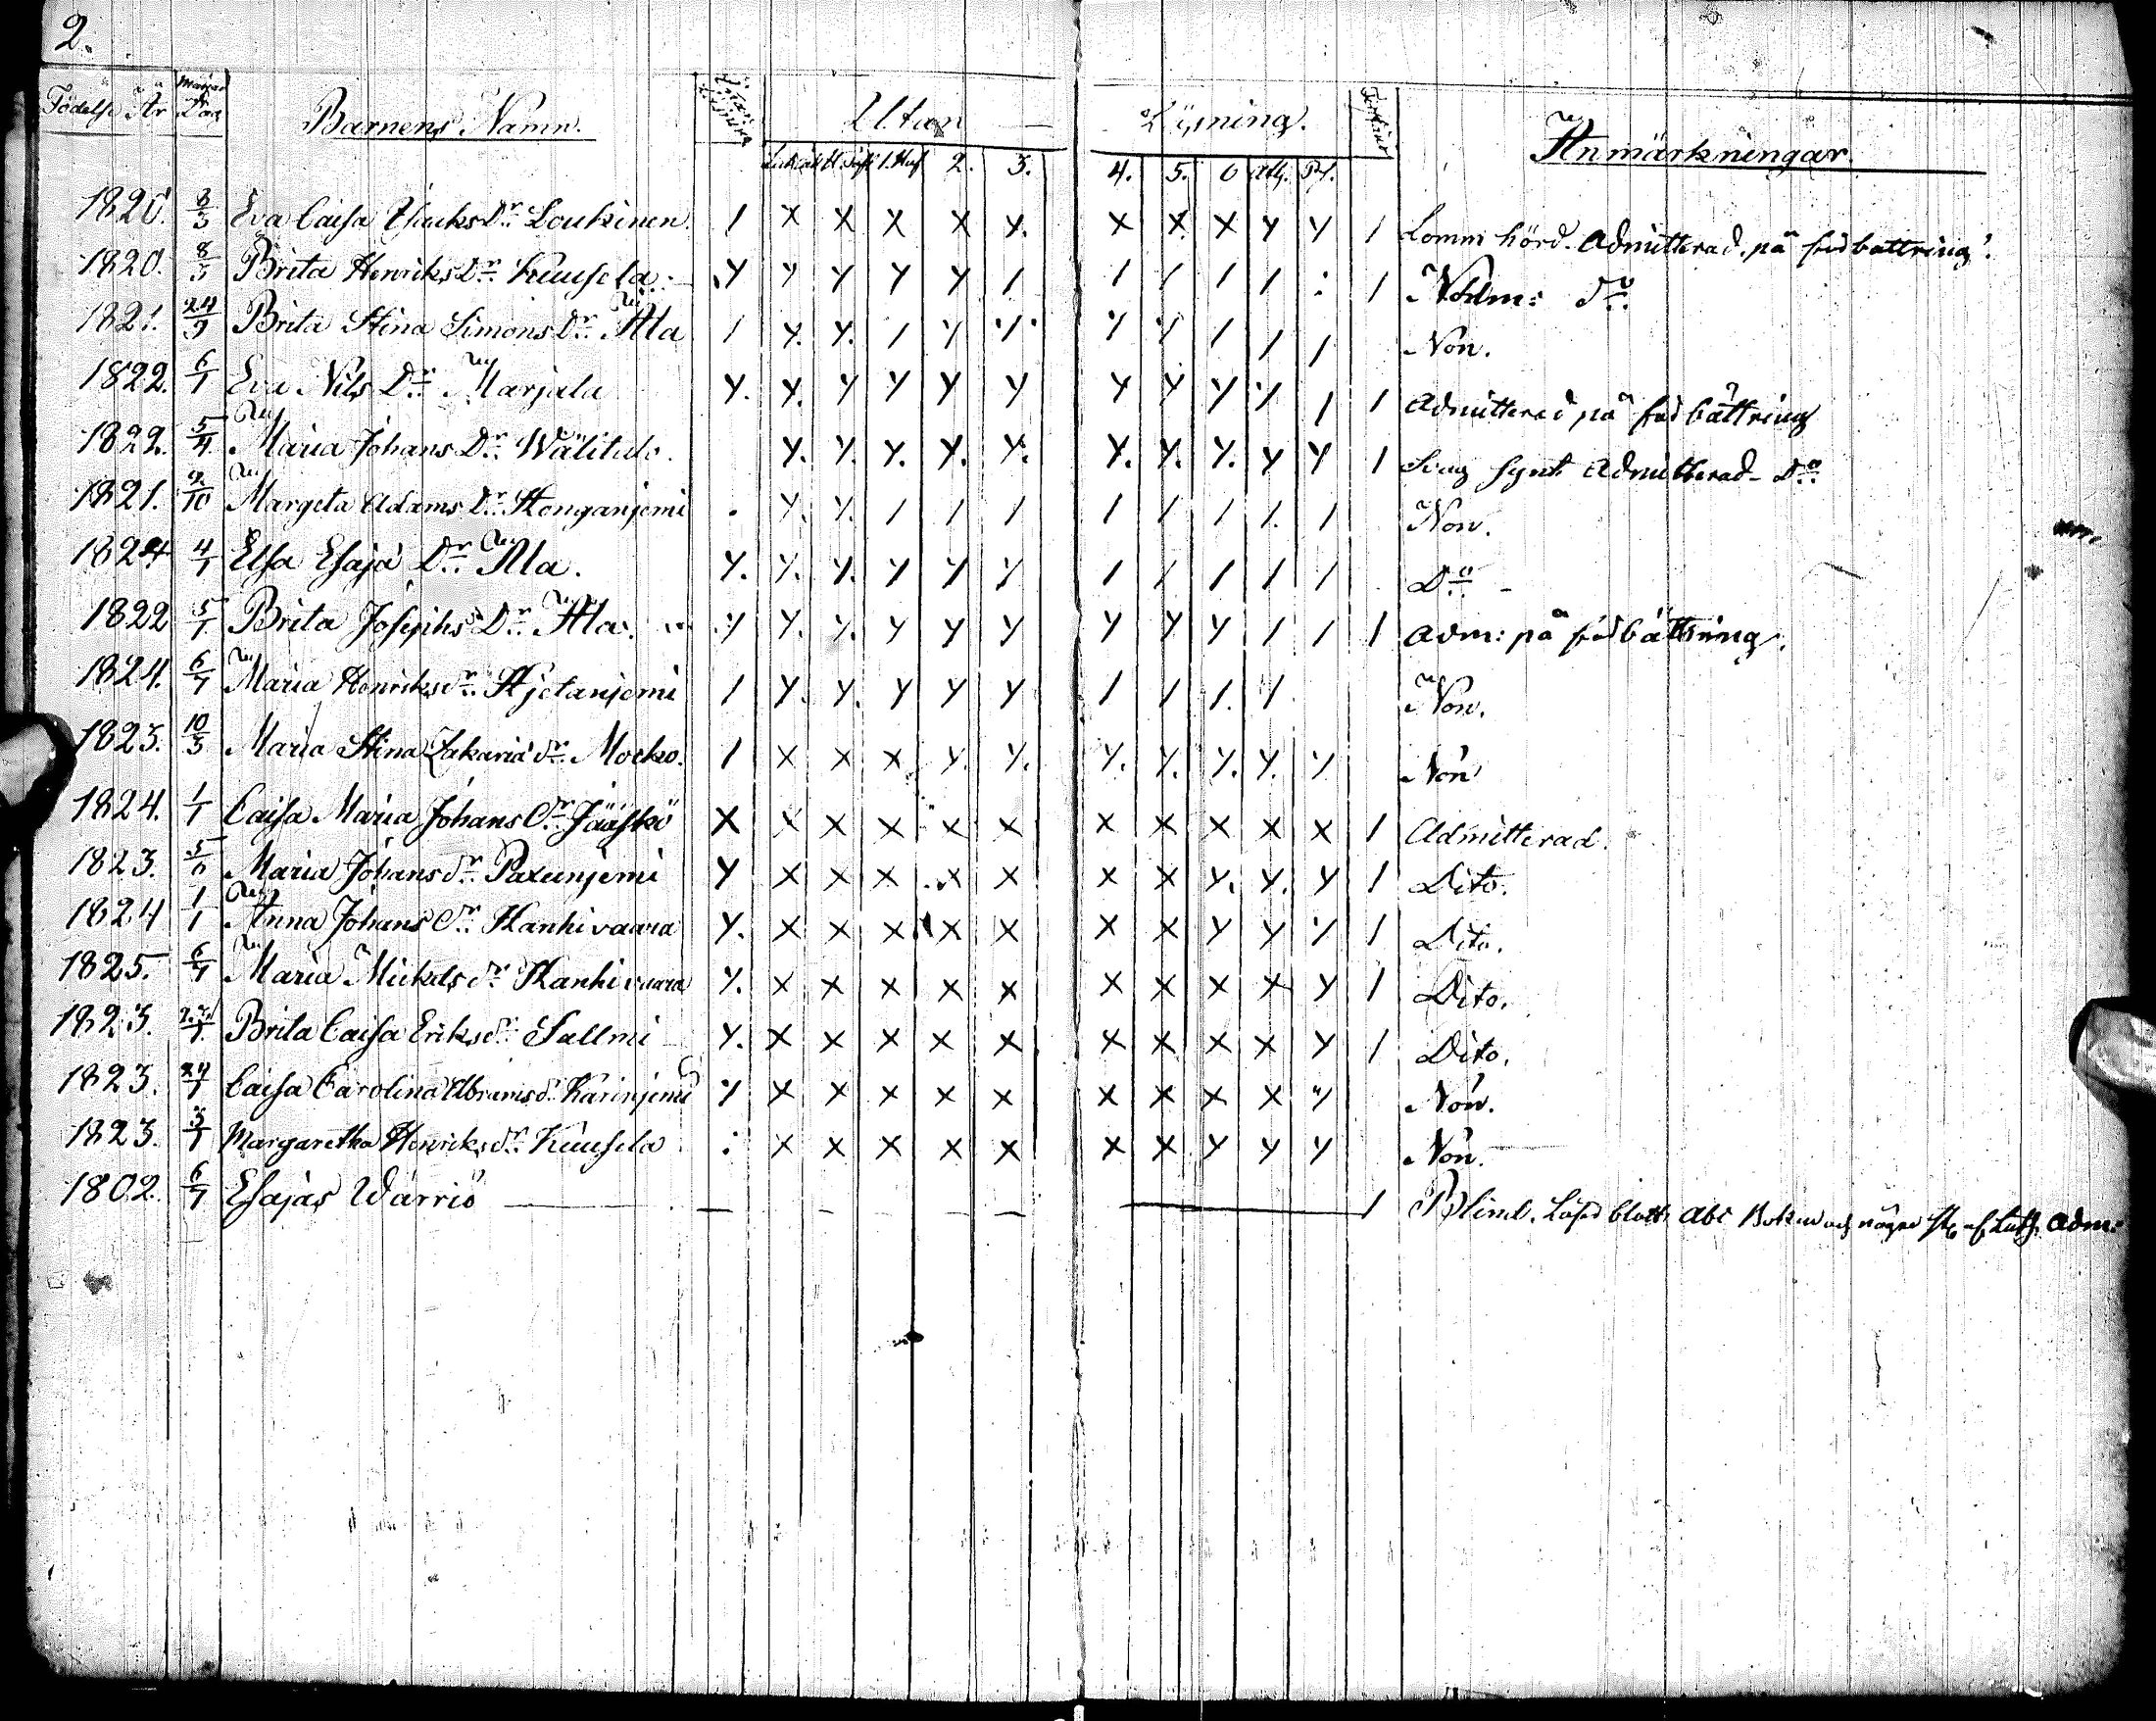 2.
Födelse År Dag Barnens Namn. Utan Läsning. Anmärkningar.
1. Huf 2. 3. 4. 5. 6
1820. 8/3 Eva Caisa Isacks Dr. Loukinen. / x x x x x. x x x y y / Lomm hörd. Admitterad. på förbättring.
1820. 8/3 Brita Henriks Dr. Kuusela. y y y y y / / / / / : / Adm: do.
1821. 24/9 Brita Stina Simons Dr. Ala / y. y. / y y y y / / / Non.
1822. 6/1 Eva Nils Dr. Marjala y. y. y y y y y y y y / / Admitterad på förbättring
1822. 5/4 Maria Johans Dr. Wälitalo. y. y. y. y. y. y. y. y. y y / Svag synt Admitterad Do.
1821. 2/10 Margeta Adams Dr. Konganjemi . y. y. / / / / / / / / Non.
1824 4/1 Elsa Esaja Dr. Ala. y. y. y. y y y / / / / / Do.
1822 5/1 Brita Josephs Dr. Ala. y y. y. y y y y y y / / / Adm: på förbättring.
1824. 6/7 Maria Henriks dr. Hjetanjemi / y. y. y y y / / / y Non.
1823. 10/3 Maria Stina Zakaria dr. Mocko. / x x x y. y. y. y. y. y. y Non
1824. 1/1 Caisa Maria Johans Dr. Jääskö x x x x x x x x x x x / Admitterad.
1823. 5/6 Maria Johans dr. Paxunjemi y x x x x x x x y. y. y / Dito.
1824 1/1 Anna Johans dr. Kanhivaara y. x x x x x x x y y y / Dito.
1825. 6/7 Maria Mickels dr. Kanhivaara y. x x x x x x x x x y / Dito.
1823. Brita Caisa Eriks dr. Sallmi y. x x x x x x x x x y / Dito.
1823. 24/7 Caisa Carolina Abrams dr. Karinjemi y x x x x x x x x x y Non.
1823. 3/1 Margaretha Henriks dr. Kuusela : x x x x x x x y y y Non.
1802. 6/7 Esajas Wärriö / Blind. Läser blott Abc Boken och några af Luth. Adm: